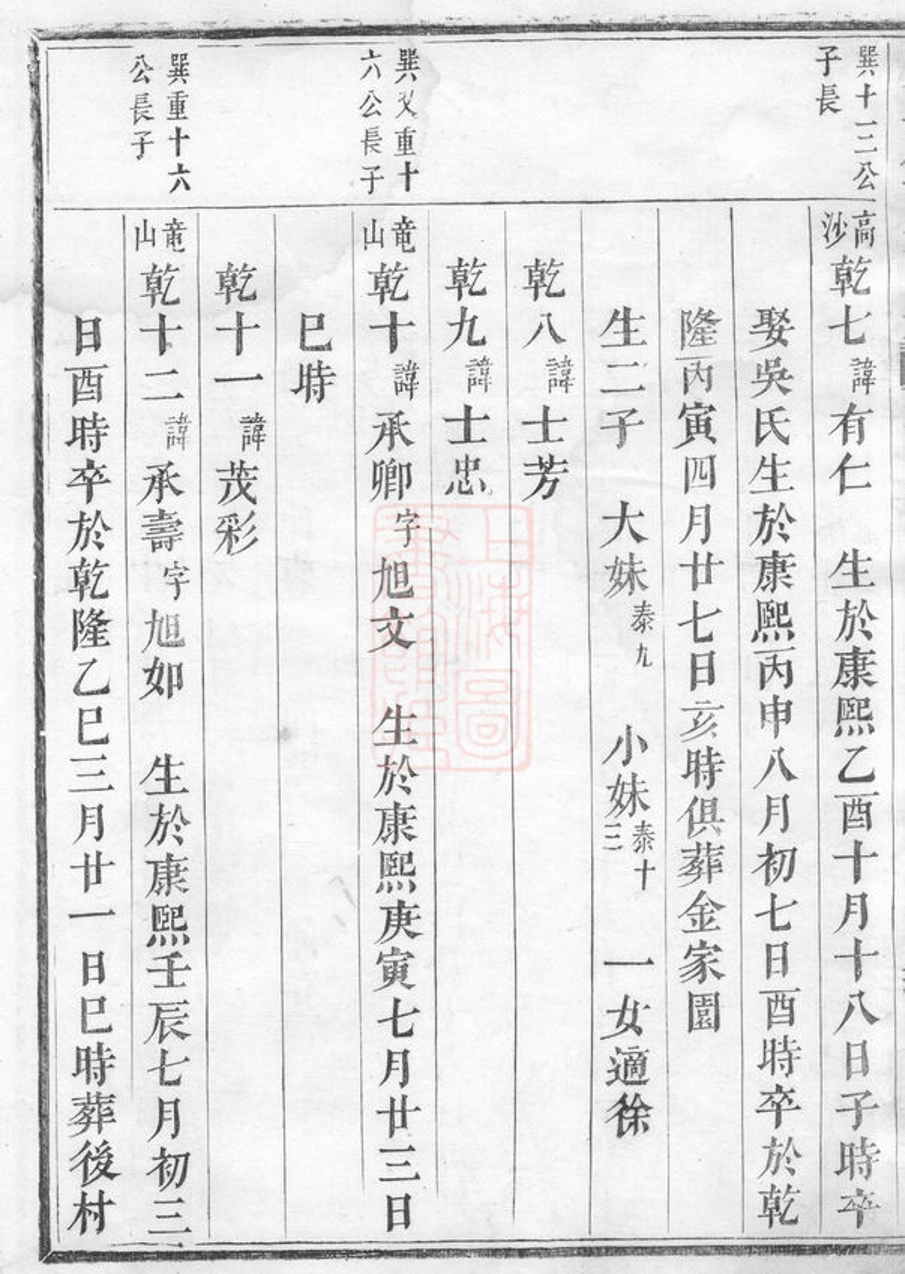 巽十三公
子長
高沙乾七諱有仁 生於康熙乙酉十月十八日子時卒
娶吳氏生於康熙丙申八月初七日酉時卒於乾
隆丙寅四月廿七日亥時俱葬金家園
生二子 大妹泰九 小妹泰十三 一女適徐
乾八諱士芳
乾九諱士忠
巽又重十
六公長子
竜山乾十諱承卿字旭文 生於康熙庚寅七月廿三日
巳時
乾十一諱茂彩
巽重十六
公長子
竜山乾十二諱承壽字旭如 生於康熙壬辰七月初三
日酉時卒於乾隆乙巳三月廿一日巳時葬後村
上海圖